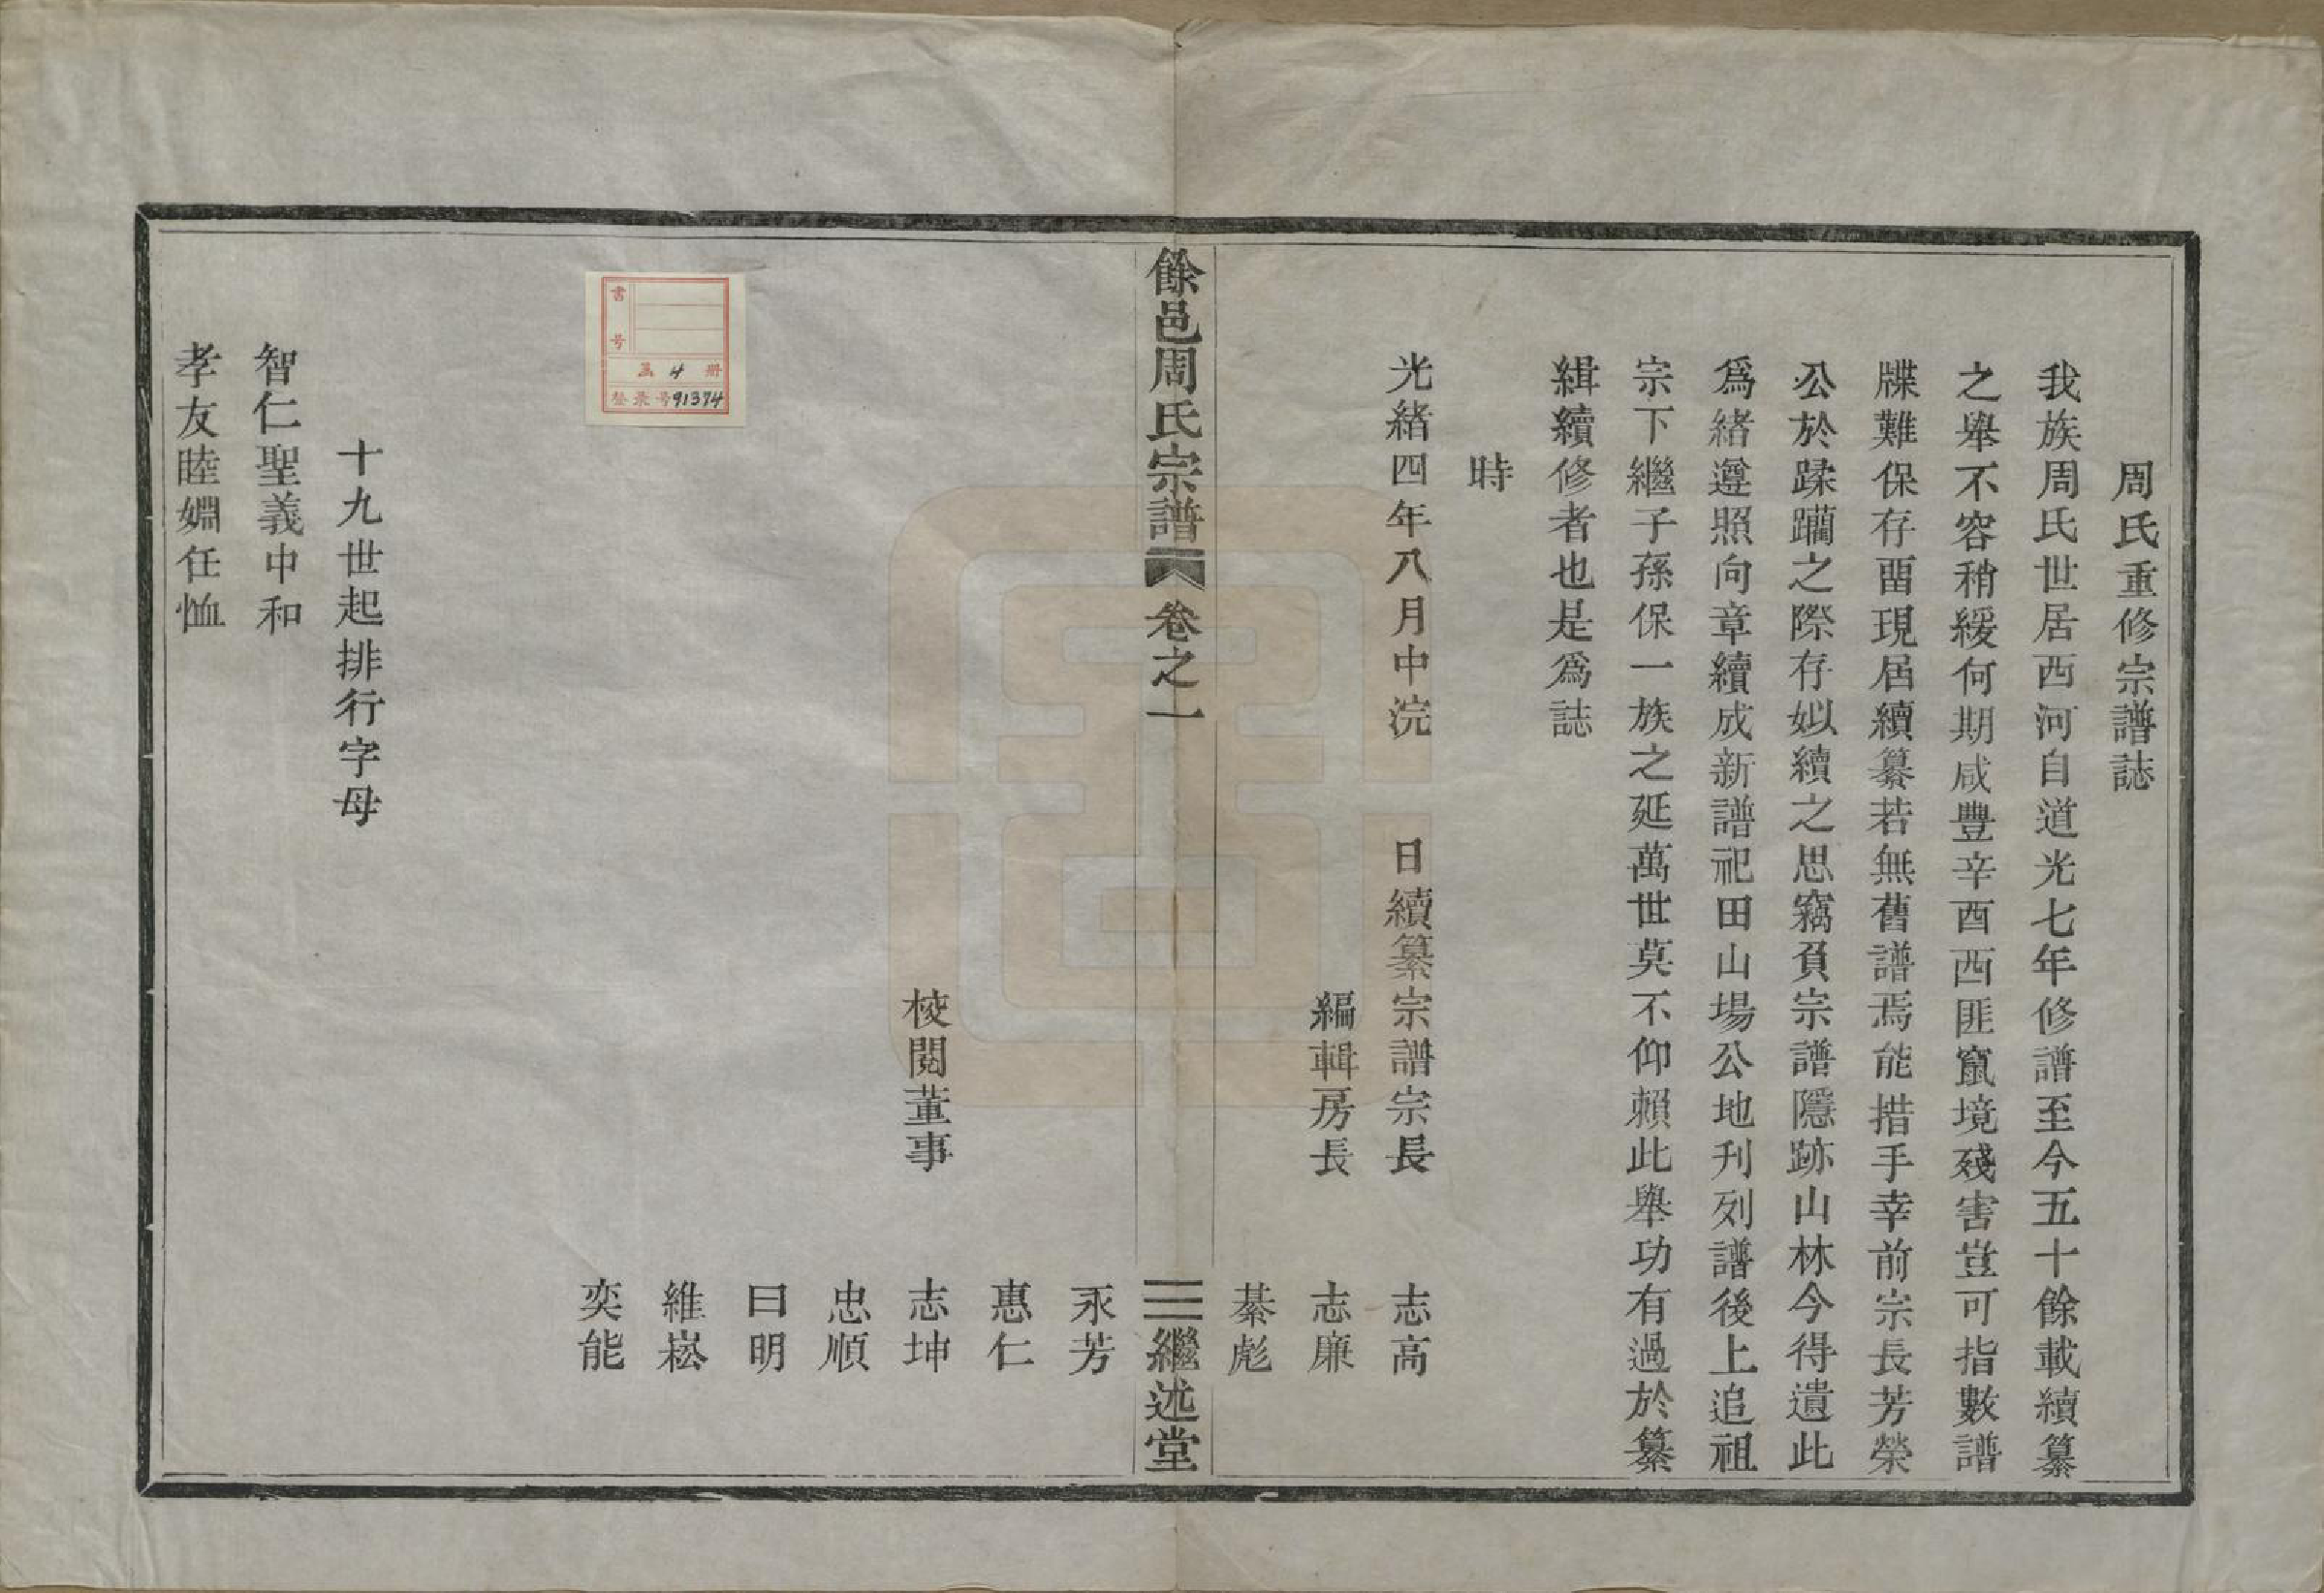 周氏重修宗譜誌
我族周氏世居西河自道光七年修譜至今五十餘載續纂
之舉不容稍緩何期咸豐辛酉西匪竄境殘害豈可指數譜
牒難保存畱現届續纂若無舊譜焉能措手幸前宗長芳榮
公於蹂躪之際存姒續之思竊負宗譜隱跡山林今得遺此
爲緒遵照向章續成新譜祀田山場公地刋列譜後上追祖
宗下繼子孫保一族之延萬世莫不仰賴此舉功有過於纂
緝續修者也是爲誌
時
光緒四年八月中浣 日續纂宗譜宗長 志高
編輯房長 志廉
綦彪
餘邑周氏宗譜 卷之一 三 繼述堂
永芳
惠仁
校閱董事 志坤
忠順
曰明
維崧
奕能
書号
函 4 册
登录号91374
十九世起排行字母
智仁聖義中和
孝友睦婣任恤